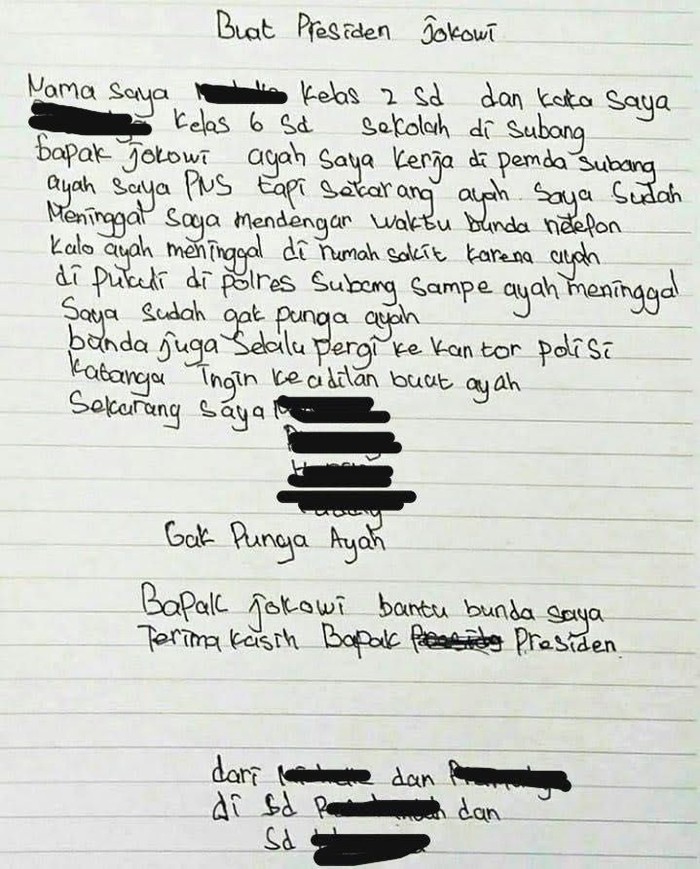 Buat Presiden jokowi
Nama saya kelas 2 Sd dan kaka saya
kelas 6 Sd sekolah di subang
bapak jokowi ayah saya kerja di pemda subang
ayah saya PNS tapi sekarang ayah saya sudah
Meninggal saya mendengar waktu bunda nelefon
kalo ayah meninggal di rumah sakit karena ayah
di pukuli di polres Subang sampe ayah meninggal
Saya sudah gak punga ayah
bunda juga selalu pergi ke kantor polisi
katanga ingin keadilan buat ayah
Sekarang saya
Gak Punga Ayah
Bapak jokowi bantu bunda saya
Terima kasih Bapak Presiden
dari dan
di Sd dan
Sd